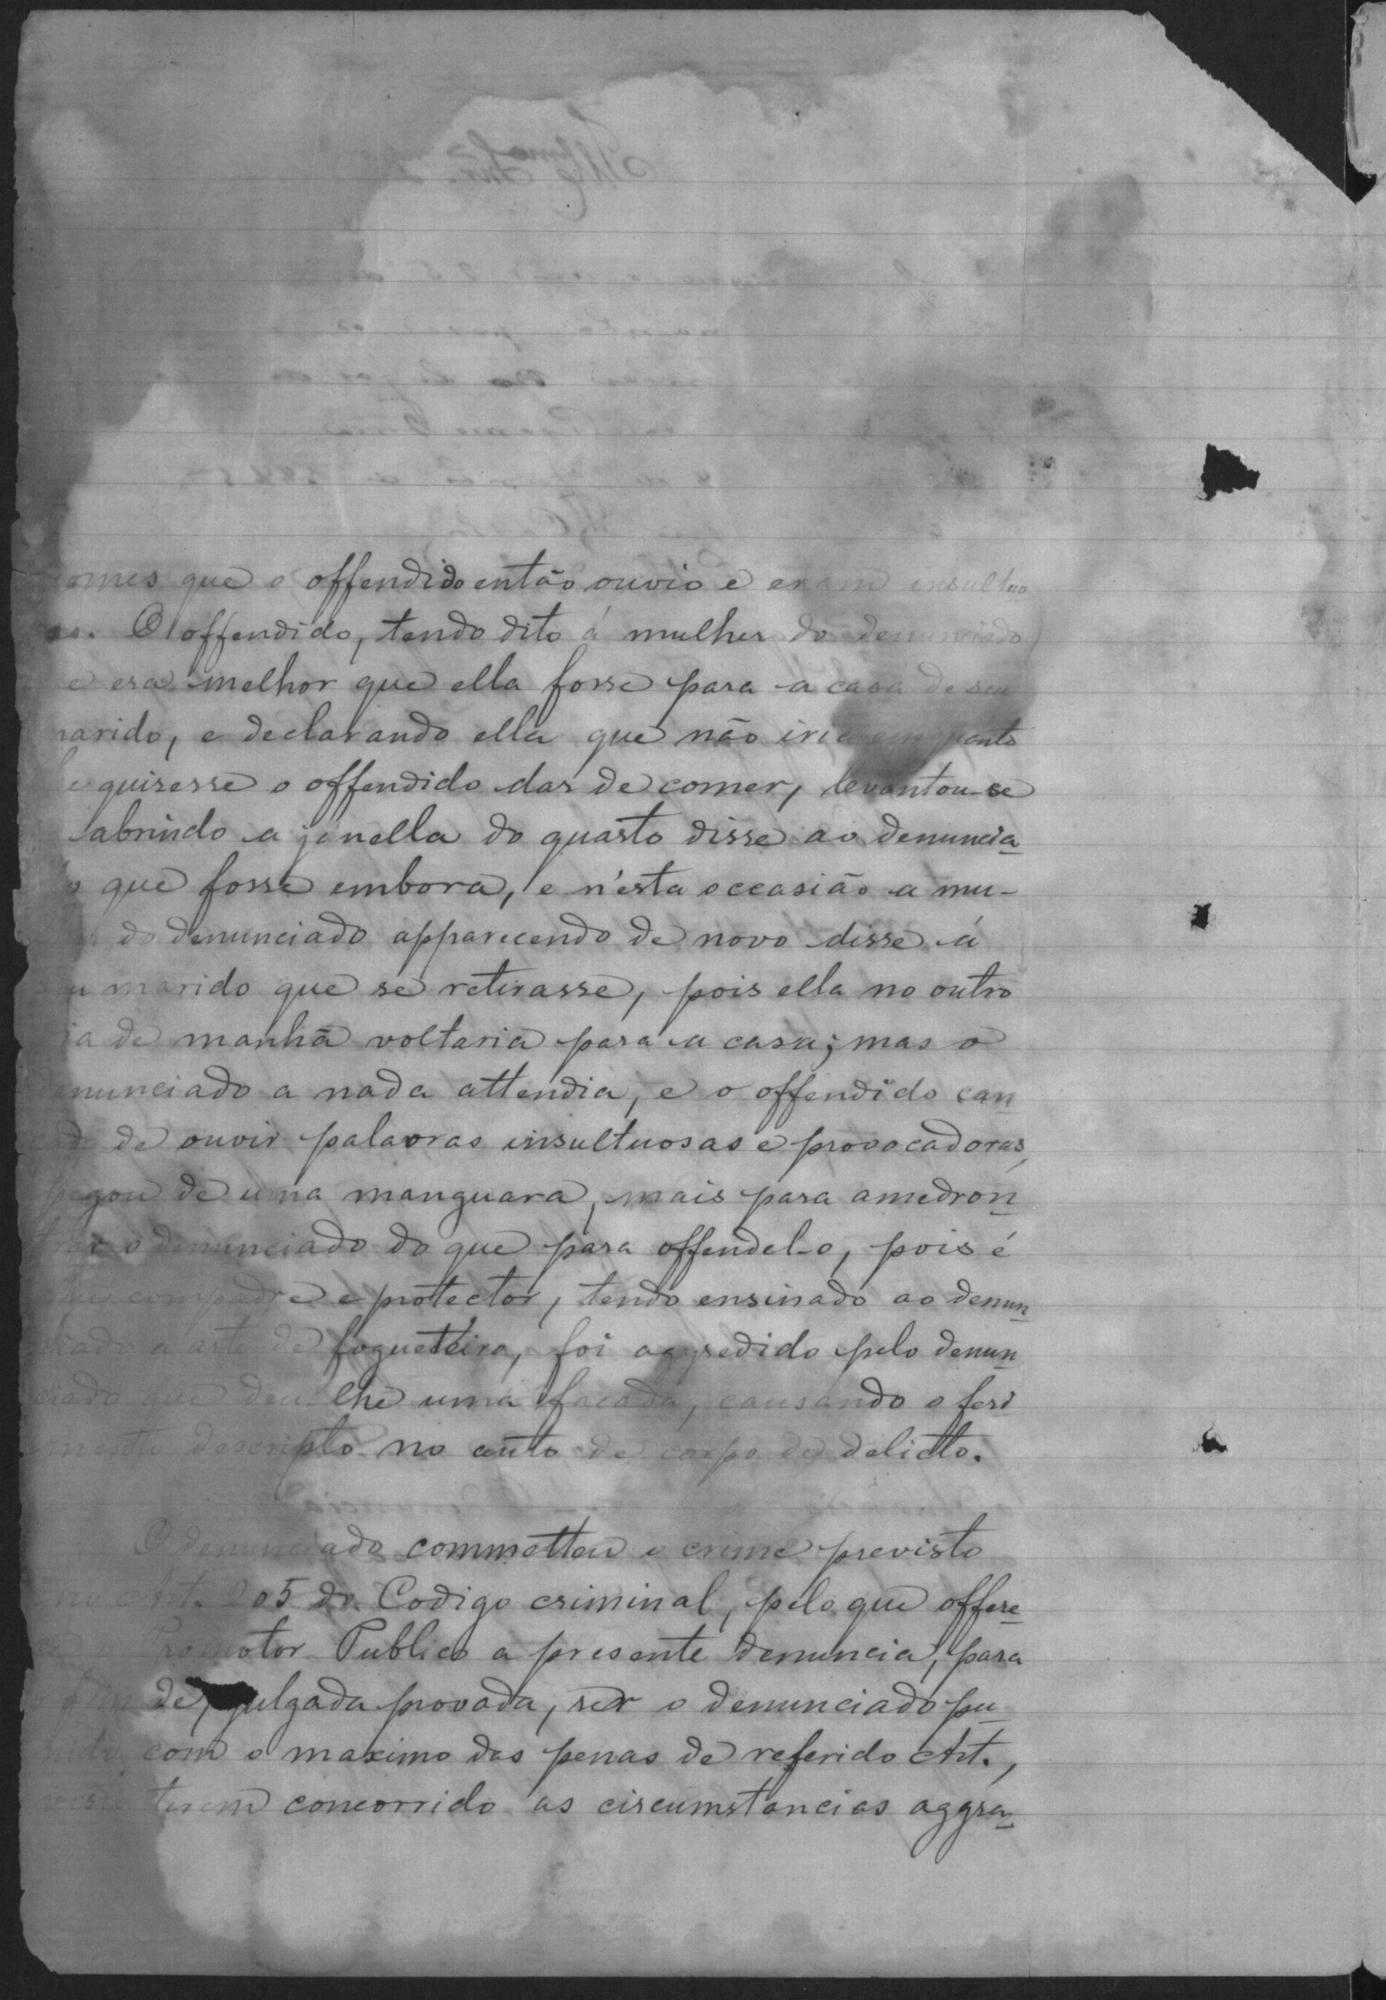 omes que o offendido então ouvio e eram insultuo
as. O offendido, tendo dito á mulher do denunciado
e era melhor que ella fosse para a casa de seu
marido, e declarando ella que não iria emquanto
he quisesse o offendido dar de comer, levantou-se
abrindo a janella do quarto disse ao denuncia-
o que fosse embora, e n'esta occasião a mu-
do denunciado apparecendo de novo disse á
u marido que se retirasse, pois ella no outro
ia de manhã voltaria para a casa; mas o
denunciado a nada attendia, e o offendido can
çado de ouvir palavras insultuosas e provocadoras,
pegou de uma manguara, mais para amedron-
trar o denunciado do que para offendel-o, pois é
seu compadre e protector, tendo ensinado ao denun-
ciado a arte de fogueteiro, foi aggredido pelo denun-
ciado que deu lhe uma facada, causando o feri
mento descripto no auto de corpo de delicto.
O denunciado commetteu o crime previsto
no Art. 205 do Codigo criminal, pelo que offere-
ce Promotor Publico a presente denuncia, para
fim de, julgada provada, ser o denunciado pu-
nido com o maximo das penas de referido Art.,
terem concorrido as circumstancias aggra-